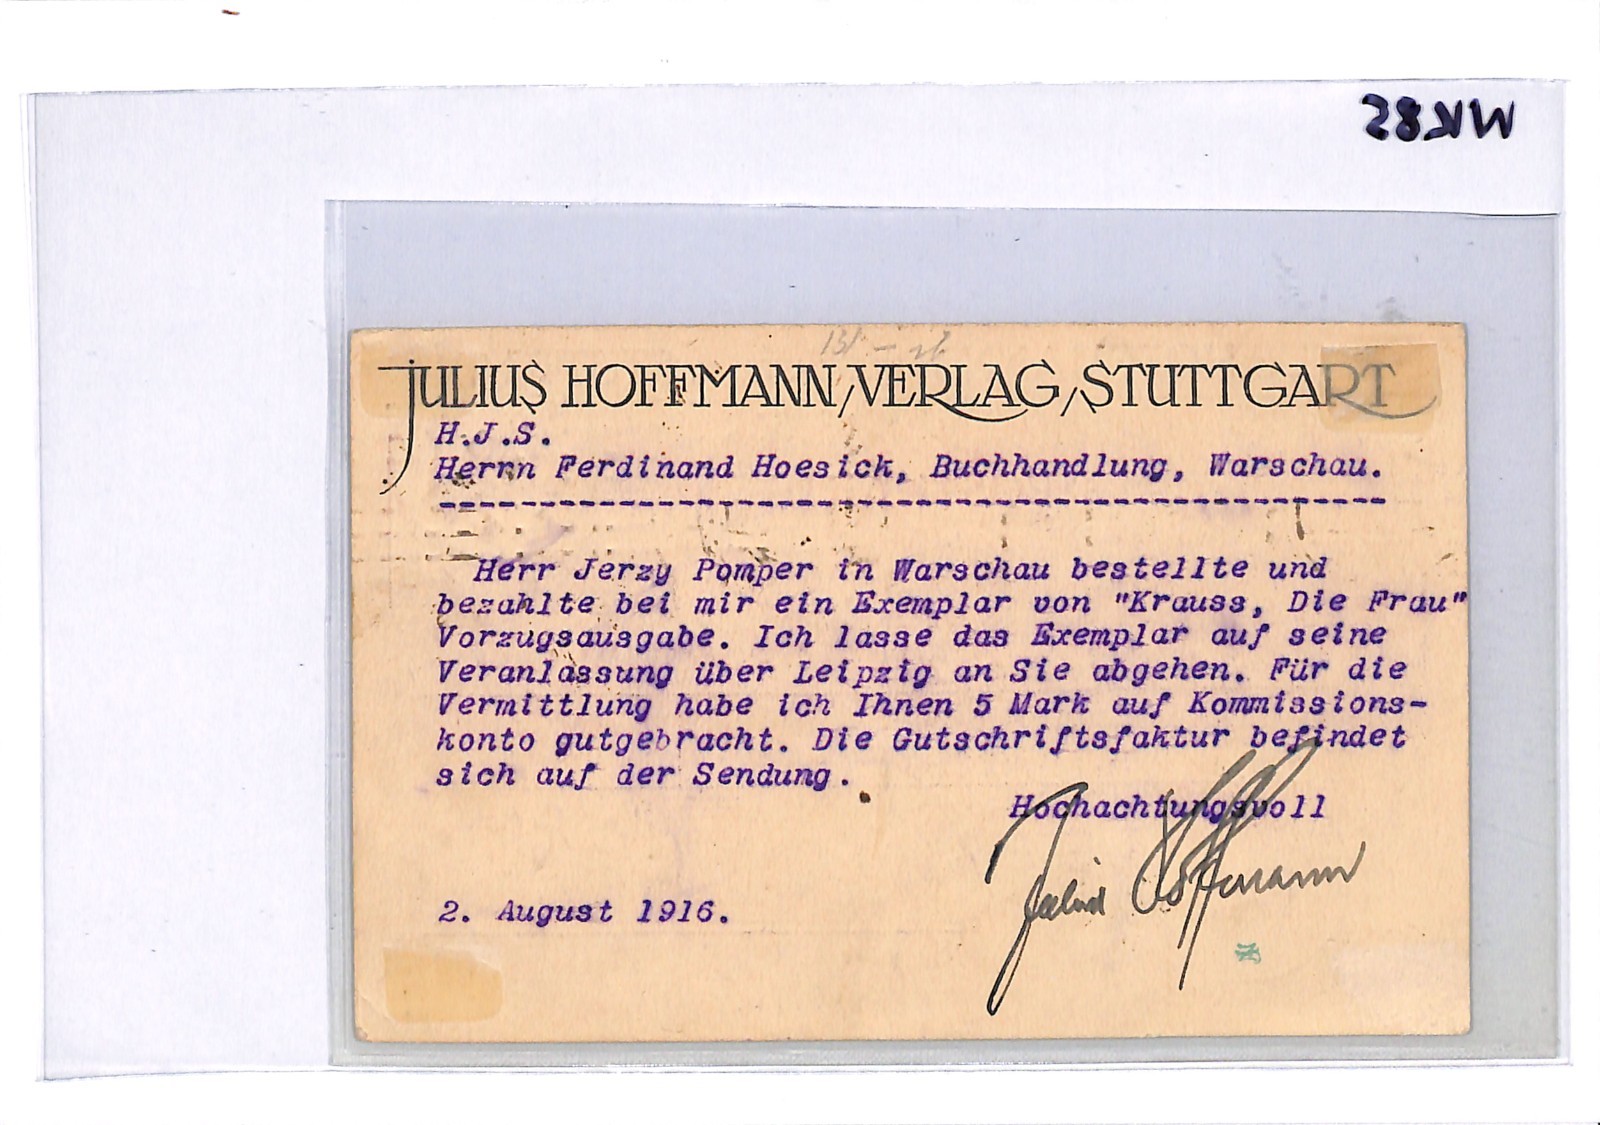 WK85
JULIUS HOFFMANN/VERLAG/STUTTGART
H.J.S.
Herrn Ferdinand Hoesick, Buchhandlung, Warschau.
Herr Jerzy Pomper in Warschau bestellte und
bezahlte bei mir ein Exemplar von "Krauss, Die Frau"
Vorzugsausgabe. Ich lasse das Exemplar auf seine
Veranlassung über Leipzig an Sie abgehen. Für die
Vermittlung habe ich Ihnen 5 Mark auf Kommissions-
konto gutgebracht. Die Gutschriftsfaktur befindet
sich auf der Sendung.
Hochachtungsvoll
Julius Hoffmann
2. August 1916.